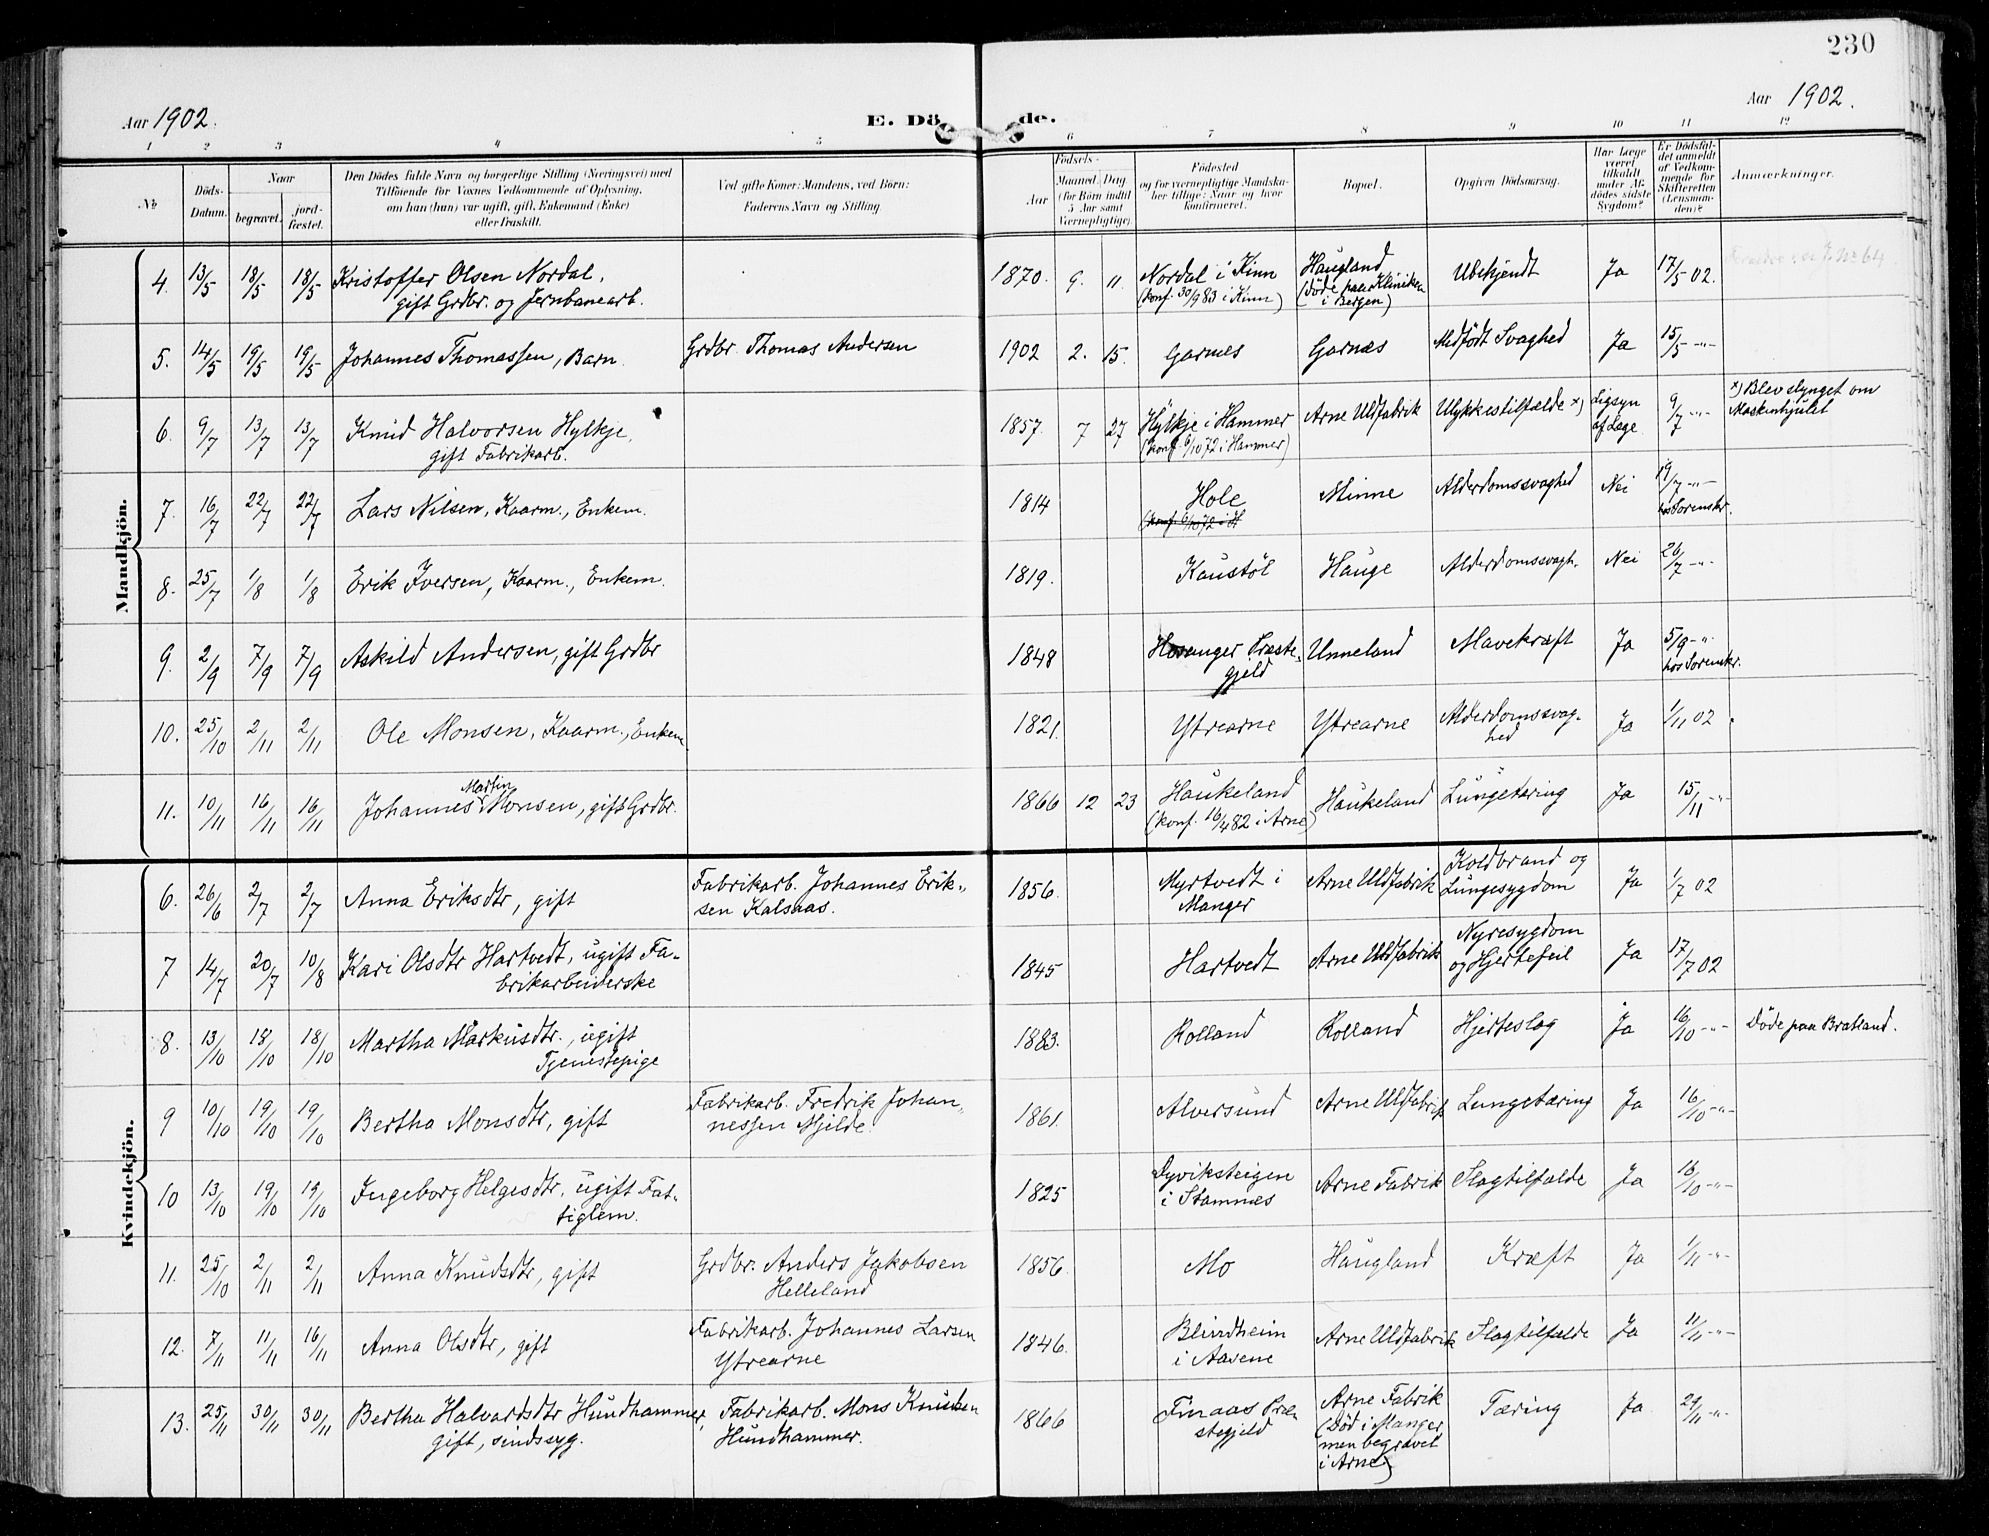 230
Aar 1902.
E. Dö de.
Aar 1902.
1 2 3 4 5 6 7 8 9 10 11 12
No
Döds-Datum.
Naar
begravet.
jord-fæstet.
Den Dödes fulde Navn og borgerlige Stilling (Næringsvei) med
Tilföiende for Voxnes Vedkommende af Oplysning,
om han (hun) var ugift, gift, Enkemand (Enke)
eller fraskilt.
Ved gifte Koner: Mandens, ved Börn:
Faderens Navn og Stilling
Födsels-
Aar
Maaned. Dag
(for Börn indtil
5 Aar samt
Værnepligtige).
Födested
og for værnepligtige Mandska-
ber tillige: Naar og hvor
konfirmeret.
Bopæl.
Opgiven Dödsaarsag.
Har Læge
været
tilkaldt
under Af-
dödes sidste
Sygdom?
Er Dödsfal-
det anmeldt
af Vedkom-
mende for
Skifteretten
(Lensman-
den)?
Anmærkninger.
Mandkjön.
4. 13/5 18/5 18/5 Kristoffer Olsen Nordal, gift Grdbr. og Jernbanearb. 1870. 9. 11. Nordal i Kinn (konf. 30/9 83 i Kinn) Haugland (döde paa Kliniken i Bergen) Ubekjendt Ja 17/5 02.
5. 14/5 19/5 19/5 Johannes Thomassen, Barn. Grdbr. Thomas Andersen 1902 2. 15. Garnes Garnæs Medfödt Svaghed Ja 15/5 -"-
6. 9/7 13/7 13/7 Knud Halvorsen Hylkje, gift Fabrikarb. 1857. 7 27 Hylkje i Hammer (konf. 6/10 72 i Hammer) Arne Uldfabrik Ulykkestilfælde x) Ligsyn af Læge 9/7 -"- x) Blev slynget om Maskinhjulet
7. 16/7 22/7 22/7 Lars Nilsen, Kaarm., Enkem. 1814 Hole (konf. 6/10 72 i H Minne Alderdomssvaghed Nei 19/7 -"- hos Sorenskr.
8. 25/7 1/8 1/8 Erik Iversen, Kaarm., Enkem. 1819. Kaustöl Hauge Alderdomssvagh. Nei 26/7 -"-
9. 2/9 7/9 7/9 Askild Andersen, gift Grdbr 1848 Hosanger Præste-gjeld Unneland Mavekræft Ja 5/9 -"- hos Sorenskr.
10. 25/10 2/11 2/11 Ole Monsen, Kaarm., Enkem 1821. Ytrearne Ytrearne Alderdomssvag-hed Ja 1/11 02
11. 10/11 16/11 16/11 Johannes Martin Monsen, gift Grdbr. 1866 12 23 Haukeland (konf. 16/4 82 i Arne) Haukeland Lungetæring Ja 15/11 -"-
Kvindekjön.
6. 26/6 2/7 2/7 Anna Eriksdtr, gift Fabrikarb. Johannes Erik-sen Kalsaas. 1856. Myrtvedt i Manger Arne Uldfabrik Koldbrand og Lungesygdom Ja 1/7 02
7 14/7 20/7 10/8 Kari Olsdtr Hartvedt, ugift Fa-brikarbeiderske 1845 Hartvedt Arne Uldfabrik Nyresygdom og Hjertefeil Ja 17/7 02
8. 13/10 18/10 18/10 Martha Markusdtr., ugift Tjenestepige 1883. Rolland Rolland Hjerteslag Ja 16/10 -"- Döde paa Bratland.
9 10/10 19/10 19/10 Bertha Monsdtr, gift Fabrikarb. Fredrik Johan-nessen Mjelde. 1861. Alversund Arne Uldfabrik Lungetæring Ja 16/10 -"-
10 13/10 19/10 19/10 Ingeborg Helgesdtr, ugift Fat-tiglem. 1825 Dyviksteigen i Stamnes Arne Fabrik Slagtilfælde Ja 16/10 -"-
11. 25/10 2/11 2/11 Anna Knudsdtr, gift Grdbr. Anders Jakobsen Helleland 1856. Mo Haugland Kræft Ja 1/11 -"-
12. 7/11 11/11 16/11 Anna Olsdtr, gift Fabrikarb. Johannes Larsen Ytrearne 1846. Blindheim i Aasene Arne Uldfabrik Slagtilfælde Ja 11/11 -"-
13. 25/11 30/11 30/11 Bertha Halvardsdtr Hundhammer, gift, sindssyg. Fabrikarb. Mons Knudsen Hundhammer. 1866 Finaas Præ-stegjeld Arne Fabrik (Död i Manger men begravet i Arne) Tæring Ja 29/11 -"-